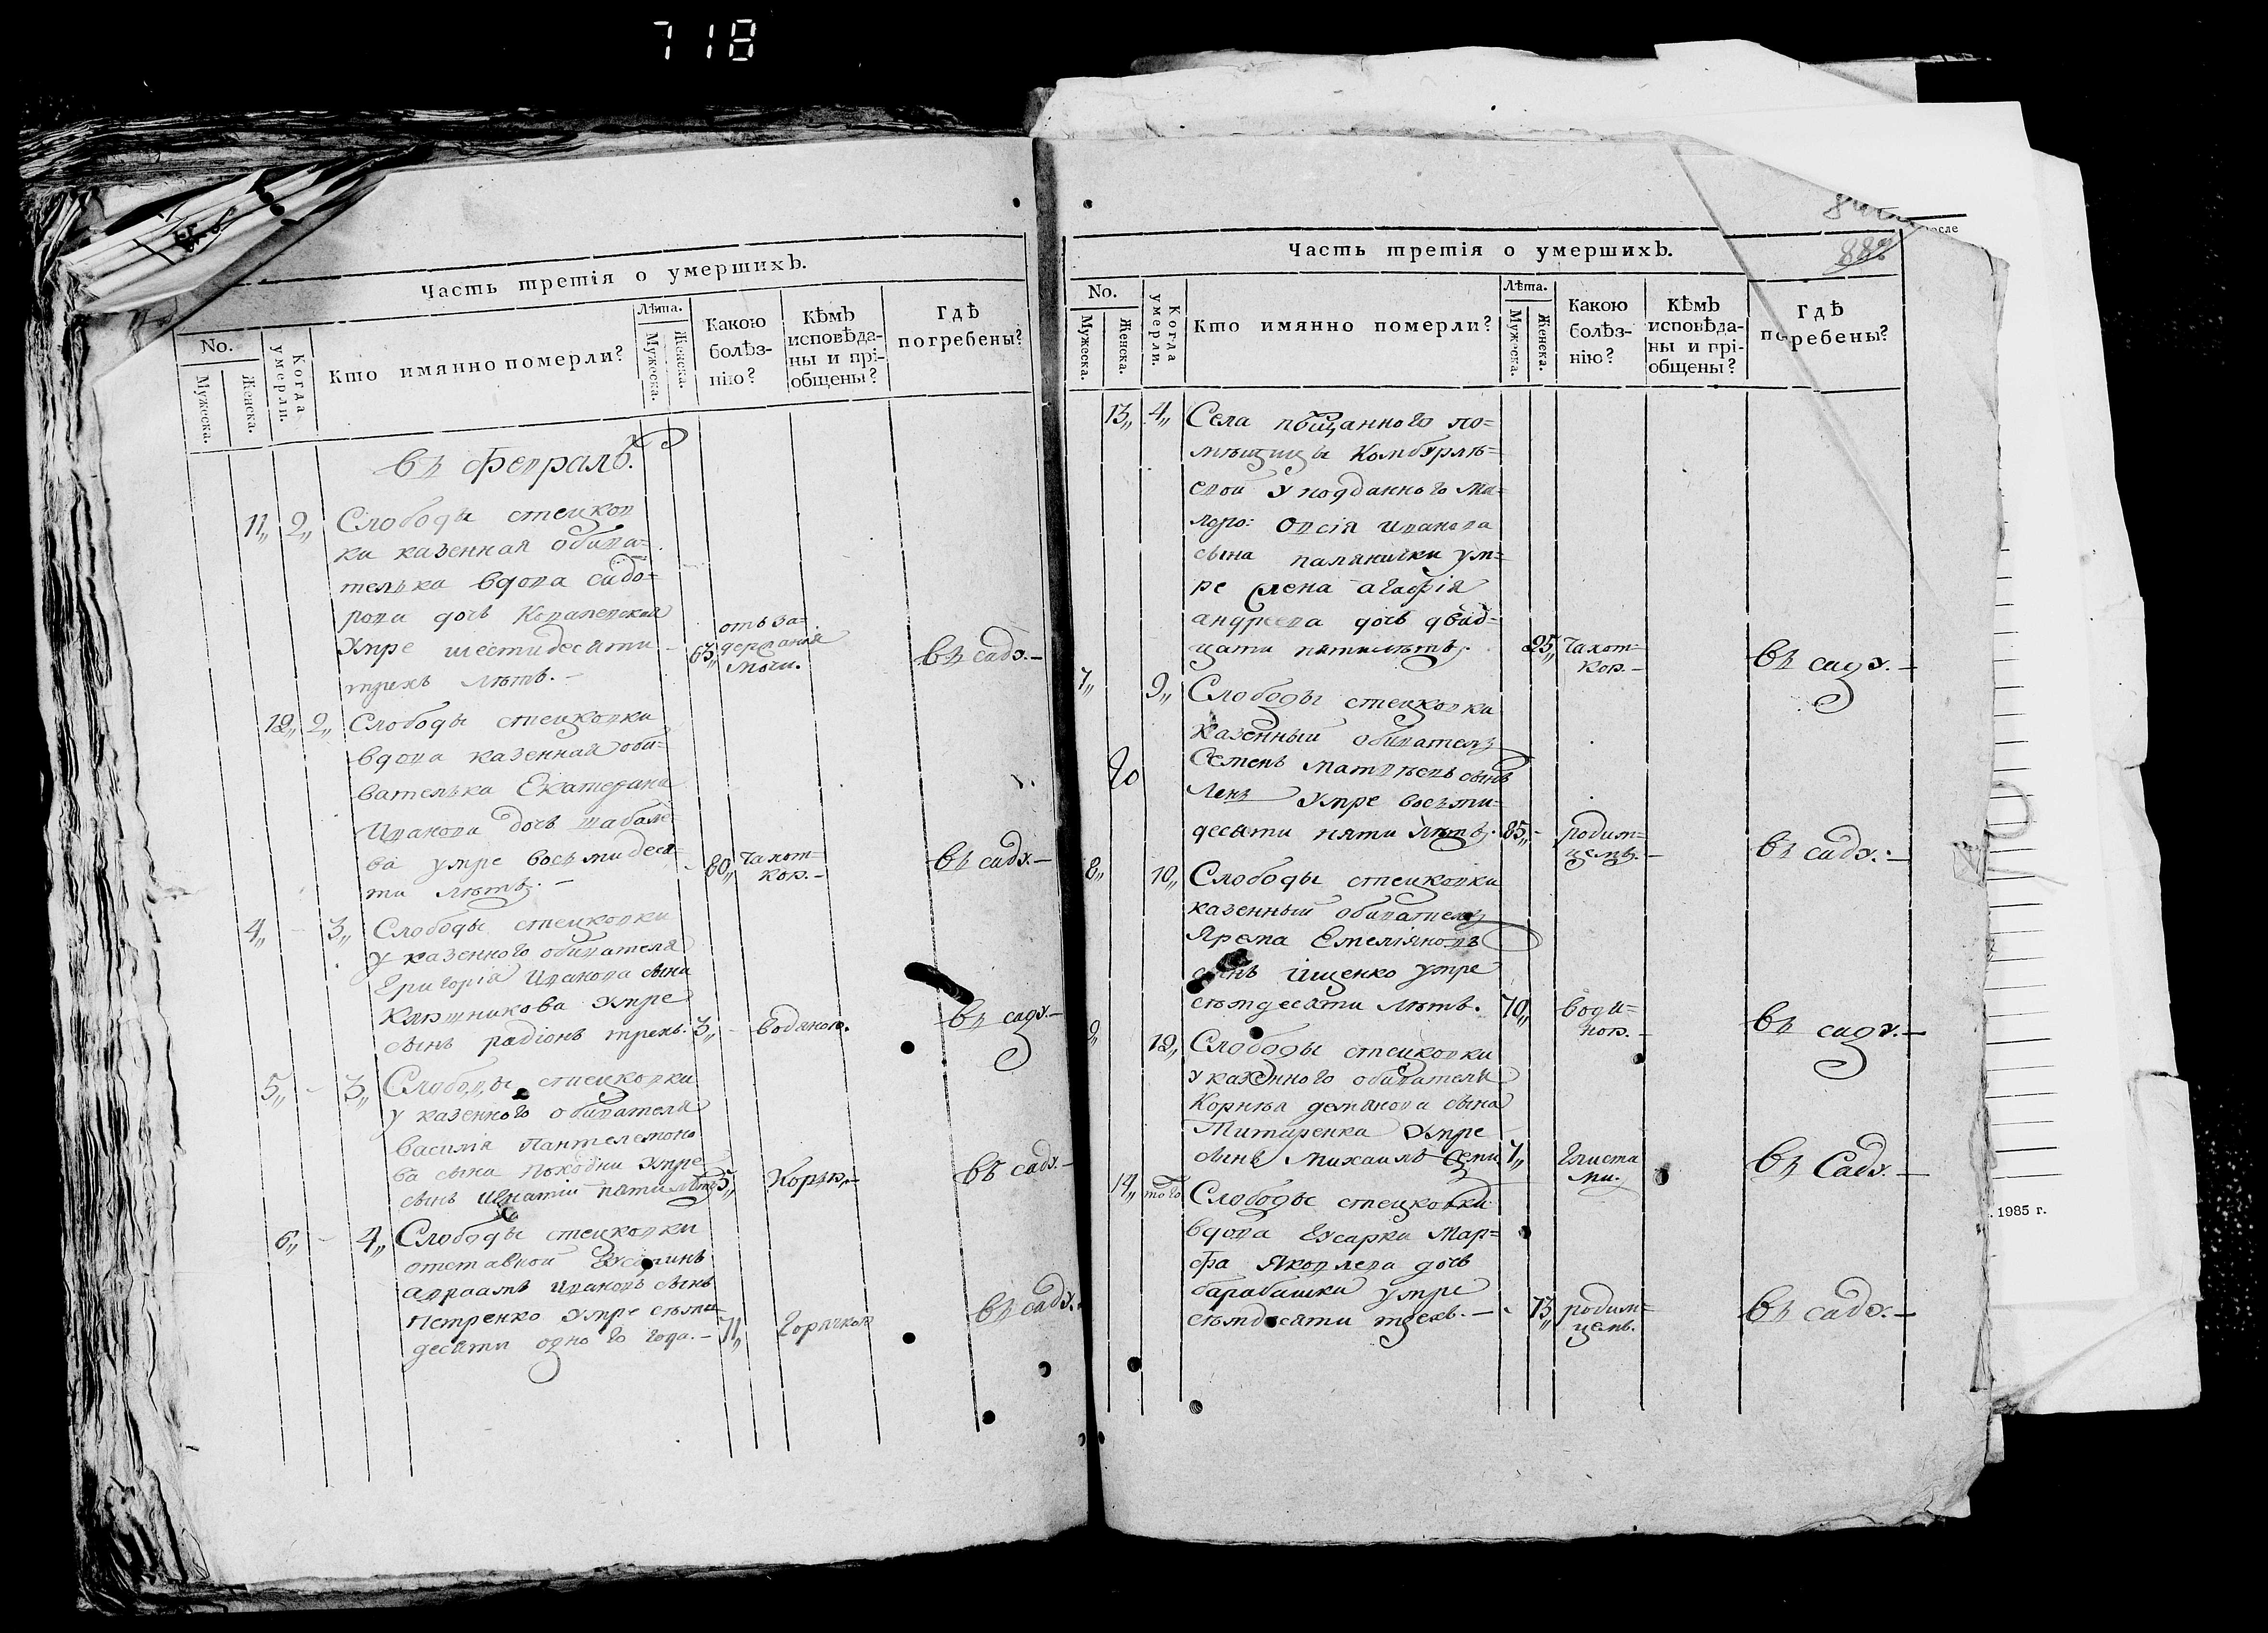 718
Часть третія о умершихъ.
No.
Мужеска.
Женска.
Когда умерли.
Кто имянно померли?
Лѣта.
Мужеска.
Женска.
Какою болѣз-
нію?
Кѣмъ
исповѣда-
ны и прі-
общены?
Гдѣ
погребены?
въ февралѣ.
11,, 2,, Слободы стецков
ки казенная обива=
телька вдова сидо=
рова дочь Ковалевская
Умре шестидесяти
трехъ лѣтъ. - 63,, отъ за=
держания
мочи. въ саду.
12,, 2,, Слободы стецковки
вдова казенная оби=
вателька Екатерина
Иванова дочь шабале
ва умре восьмидеся
ти лѣтъ. - 80,, Чахот=
кою. - въ саду. -
4,, - 3,, Слободы стецковки
у казенного обивателя
Григорія Иванова сына
Кляшникова Умре
сынъ радіонъ трехъ. 3,, - водяною. въ саду. -
5,, - 3,, Слободы стецковки
у казенного обивателя
Василія Пантелемоно
ва сына Походни Умре
сынъ Игнатій пяти лѣтъ 5,, Корью. - въ саду. -
6,, - 4,, Слободы стецковки
отставной
авраамъ Ивановъ сынъ
Петренко Умре семи
десяти одного года. - 71,, Горячкою въ саду.
888
Часть третія о умершихъ.
No.
Мужеска.
Женска.
Когда умерли.
Кто имянно померли?
Лѣта.
Мужеска.
Женска.
Какою
болѣз-
нію?
Кѣмъ
исповѣда-
ны и прі-
общены?
Гдѣ
погребены?
13,, 4,, Села пѣщанного по=
мѣщицы Комбурлѣ=
евой У подданного ма=
лоро: Овсія Иванова
сына паляницки ум=
ре жена агафія
андреева дочь двад=
цати пятилѣтъ. 25,, Чахот=
кою. - въ саду. -
7,, 9,, Слободы стецковки
Казенный обиватель
Семенъ матвѣевъ сынъ
Умре восьми=
десяти пяти лѣтъ. 85,, - родим=
цемъ. - въ саду. -
8,, 10,, Слободы стецковки
казенный обиватель
Ярема Емеліяновъ
сынъ Ищенко умре
семдесяти лѣтъ. 70,, водя=
ною. - въ саду. -
9,, 12,, Слободы стецковки
у казенного обивателя
Корнѣя демянова сына
Титаренка Умре
сынъ Михаилъ Семи 7,, Глиста
ми. въ Саду. -
14,, того Слободы стецковки
вдова Гусарка Мар=
фа Яковлева дочь
барабашки умре
семдесяти трехъ. - - 73,, родим=
цемъ. въ саду. -
. 1985 г.